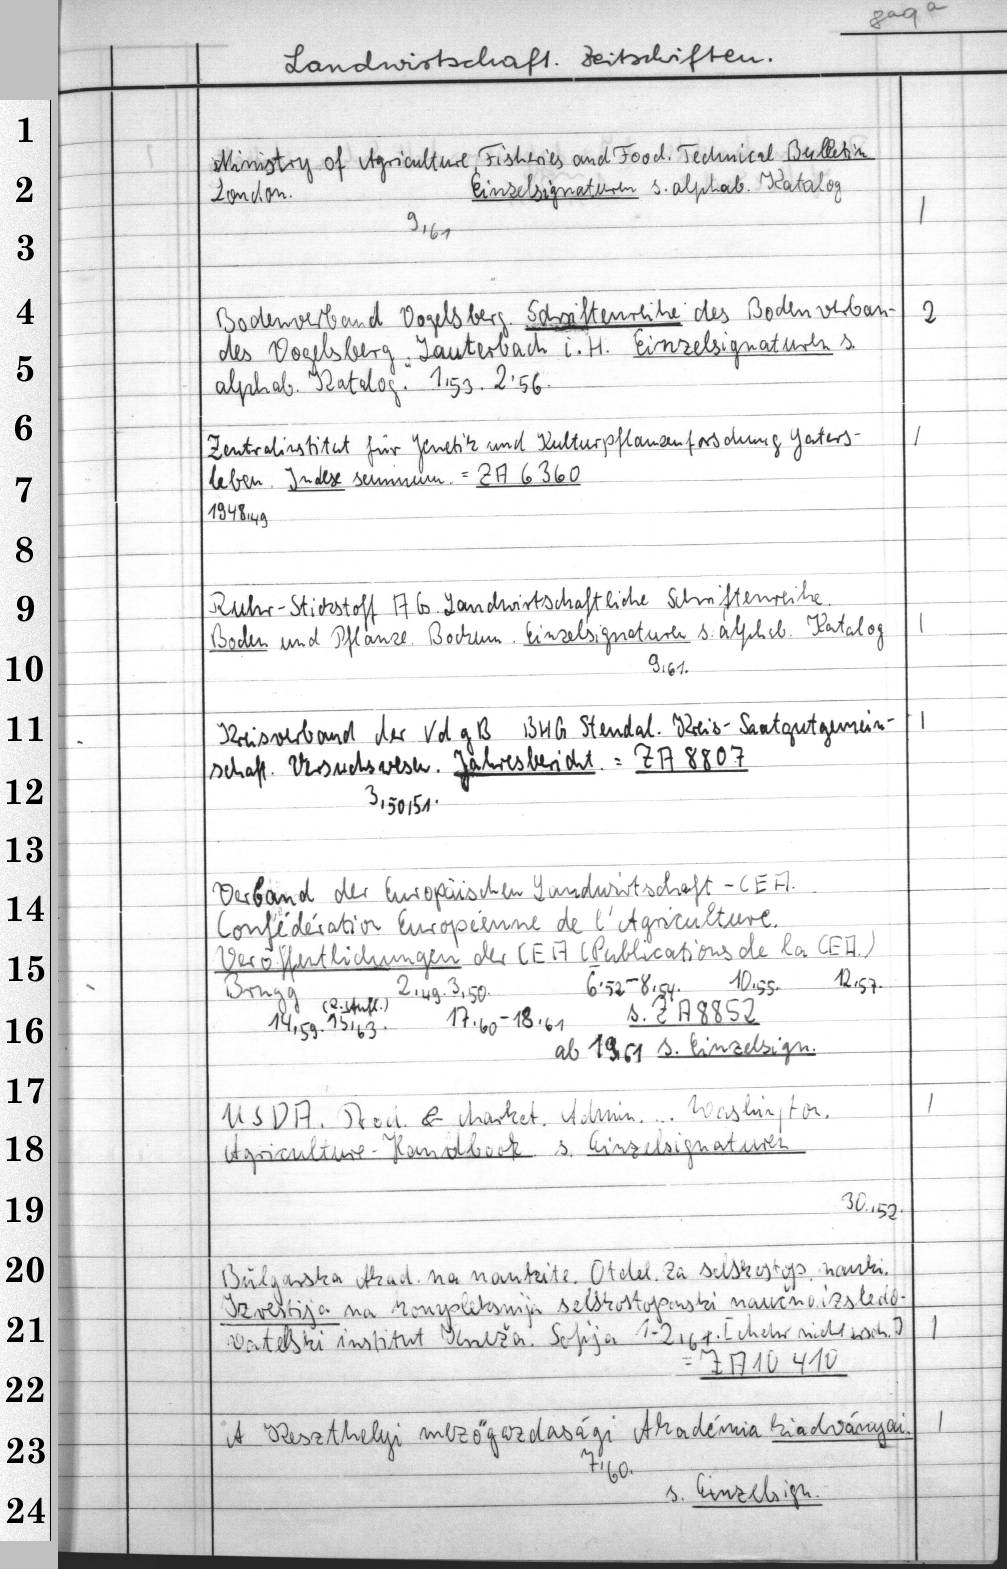 8°9a
Landwirtschaft. Zeitschriften.
1
Ministry of Agriculture, Fisheries and Food. Technical Bulletin
2
London. Einzelsignaturen s. alphab. Katalog
1
9,61
3
4
Bodenverband Vogelsberg. Schriftenreihe des Bodenverban-
2
des Vogelsberg. Lauterbach i. H. Einzelsignaturen s.
5
alphab. Katalog. 1,53. 2,56.
6
Zentralinstitut für Genetik und Kulturpflanzenforschung Gaters-
1
7
leben. Index seminum. = ZA 6360
1948,49
8
9
Ruhr-Stickstoff AG. Landwirtschaftliche Schriftenreihe.
Boden und Pflanze. Bochum. Einzelsignaturen s. alphab. Katalog
1
10
9,61.
11
Kreisverband der VdgB BHG Stendal. Kreis-Saatgutgemein-
1
schaft. Versuchswesen. Jahresbericht. = ZA 8807
12
3,50,51.
13
14
Verband der Europäischen Landwirtschaft - CEA.
Confédération Européenne de l'Agriculture.
15
Veröffentlichungen der CEA (Publications de la CEA.)
Brugg 2,49. 3,50. 6,52-8,54. 10,55. 12,57.
16
14,59. 15,63. (2. Aufl.) 17,60-18,61 s. ZA 8852
ab 19,61 s. Einzelsign.
17
USDA. Prod. & Market. Admin. ... Washington.
1
18
Agriculture-Handbook. s. Einzelsignaturen
19
30,52.
20
Bŭlgarska Akad. na naukite. Otdel. za selskostop. nauki.
Izvestija na kompleksnija selskostopanski naučnoizsledo-
21
vatelski institut Kneža. Sofija 1-2,64. [Mehr nicht ersch.]
1
= ZA 10 410
22
23
A Keszthelyi mezőgazdasági Akadémia kiadványai.
1
7,60.
24
s. Einzelsign.